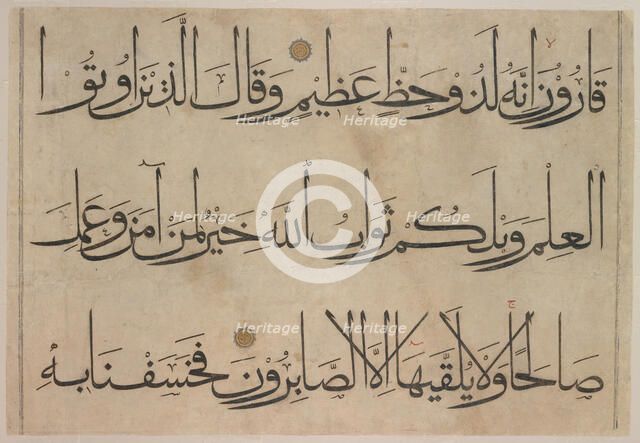 قَارُوْنُ اِنَّهُ لَذُوْ حَظٍّ عَظِيْمٍ وَقَالَ الَّذِيْنَ اُوتُوْا
الْعِلْمَ وَيْلَكُمْ ثَوَابُ اللّٰهِ خَيْرٌ لِمَنْ آمَنَ وَعَمِلَ
صَالِحًا وَلَا يُلَقّٰيهَا اِلَّا الصَّابِرُوْنَ فَخَسَفْنَا بِهِ
Heritage Heritage Heritage
Heritage Heritage Heritage
Heritage Heritage Heritage